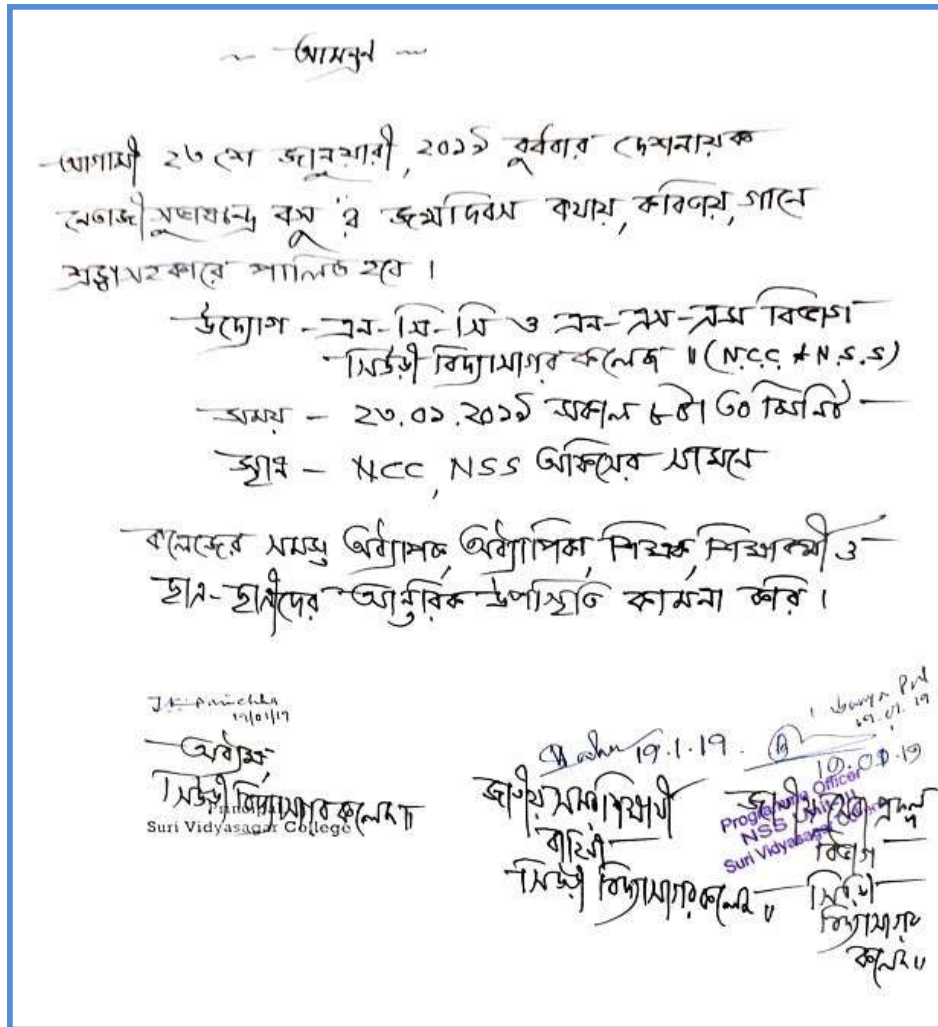 ~ আমন্ত্রণ ~
আগামী ২৩ শে জানুয়ারী, ২০১৯ বুধবার দেশনায়ক
নেতাজী সুভাষচন্দ্র বসু'র জন্মদিবস কথায়, কবিতায়, গানে
শ্রদ্ধাসহকারে পালিত হবে ।
উদ্যোগ - এন-সি-সি ও এন-এস-এস বিভাগ
সিউড়ী বিদ্যাসাগর কলেজ ॥ (N.C.C & N.S.S)
সময় - ২৩.০১.২০১৯ সকাল ৮ টা ৩০ মিনিট
স্থান - NCC, NSS অফিসের সামনে
কলেজের সমস্ত অধ্যাপক, অধ্যাপিকা, শিক্ষক, শিক্ষাকর্মী ও
ছাত্র-ছাত্রীদের আন্তরিক উপস্থিতি কামনা করি ।
19/01/19
অধ্যক্ষ
সিউড়ী বিদ্যাসাগর কলেজ ॥
Principal
Suri Vidyasagar College
19.1.19.
জাতীয় সমর শিক্ষার্থী
বাহিনী
সিউড়ী বিদ্যাসাগর কলেজ ॥
19.01.19
Programme Officer
NSS Unit
Suri Vidyasagar College
জাতীয় সেবা প্রকল্প
বিভাগ
সিউড়ী
বিদ্যাসাগর
কলেজ ॥